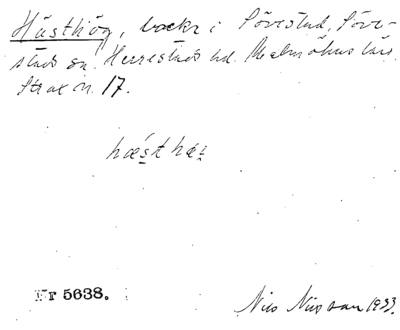 Hästhög, backe i Sövestad, Söve-
stads sn. Herrestads hd. Malmöhus län.
Strax n. 17.
hæst hø:
Nr 5638. Nils Nilsson 1933.